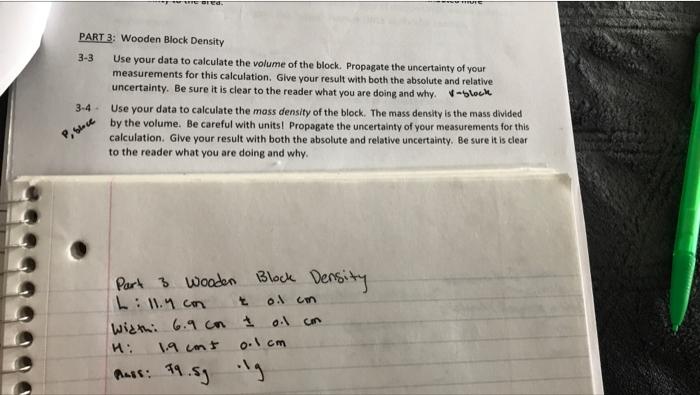 the area.
PART 3: Wooden Block Density
3-3 Use your data to calculate the volume of the block. Propagate the uncertainty of your
measurements for this calculation. Give your result with both the absolute and relative
uncertainty. Be sure it is clear to the reader what you are doing and why. V-block
3-4 - Use your data to calculate the mass density of the block. The mass density is the mass divided
P, block by the volume. Be careful with units! Propagate the uncertainty of your measurements for this
calculation. Give your result with both the absolute and relative uncertainty. Be sure it is clear
to the reader what you are doing and why.
Part 3 Wooden Block Density
L: 11.4 cm ± 0.1 cm
Width: 6.9 cm ± 0.1 cm
H: 1.9 cm ± 0.1 cm
Mass: 79.5g .1g